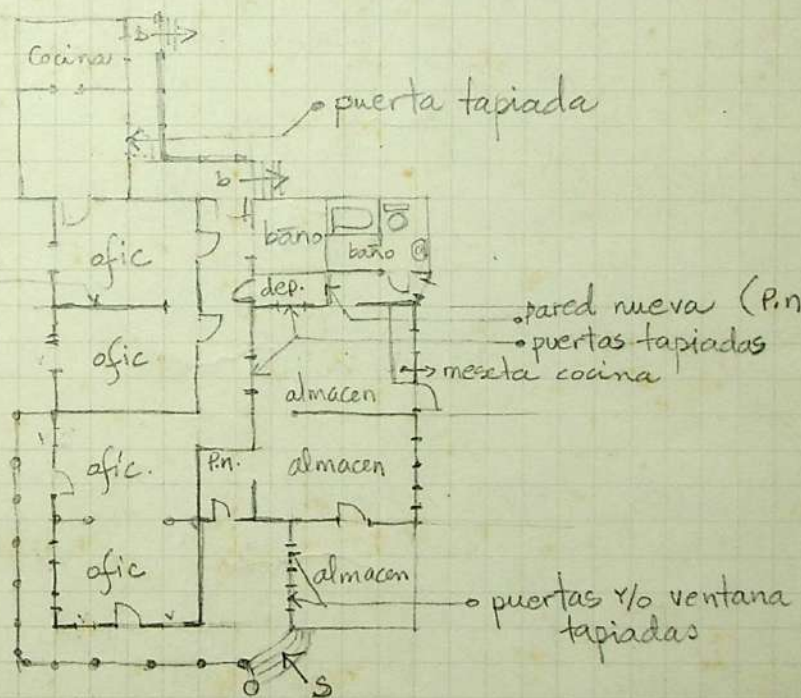 b
Cocina
puerta tapiada
b
baño
baño
ofic
dep.
pared nueva (P.n
puertas tapiadas
meseta cocina
ofic
almacen
ofic.
P.n.
almacen
ofic
almacen
puertas y/o ventana
tapiadas
S